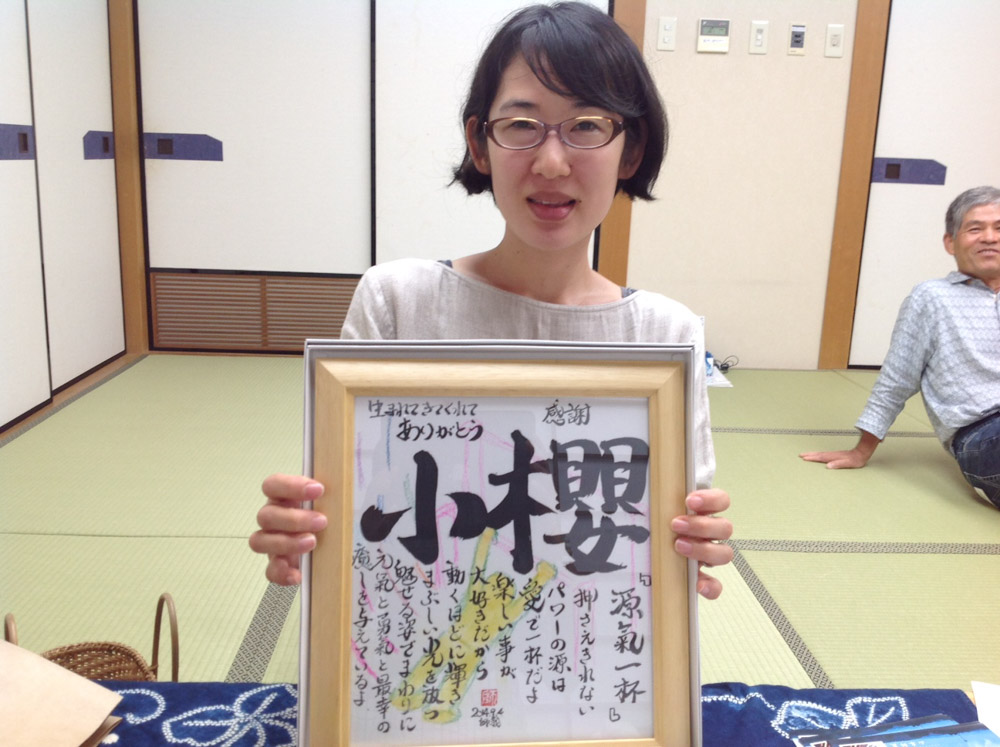 感謝
生まれてきてくれて
ありがとう
小櫻
『源氣一杯』
押さえきれない
パワーの源は
愛で一杯だよ
楽しい事が
大好きだから
動くほどに輝き
まぶしい光を放つ
魅せる姿でまわりに
元氣と勇氣と最幸の
癒しを与えているよ